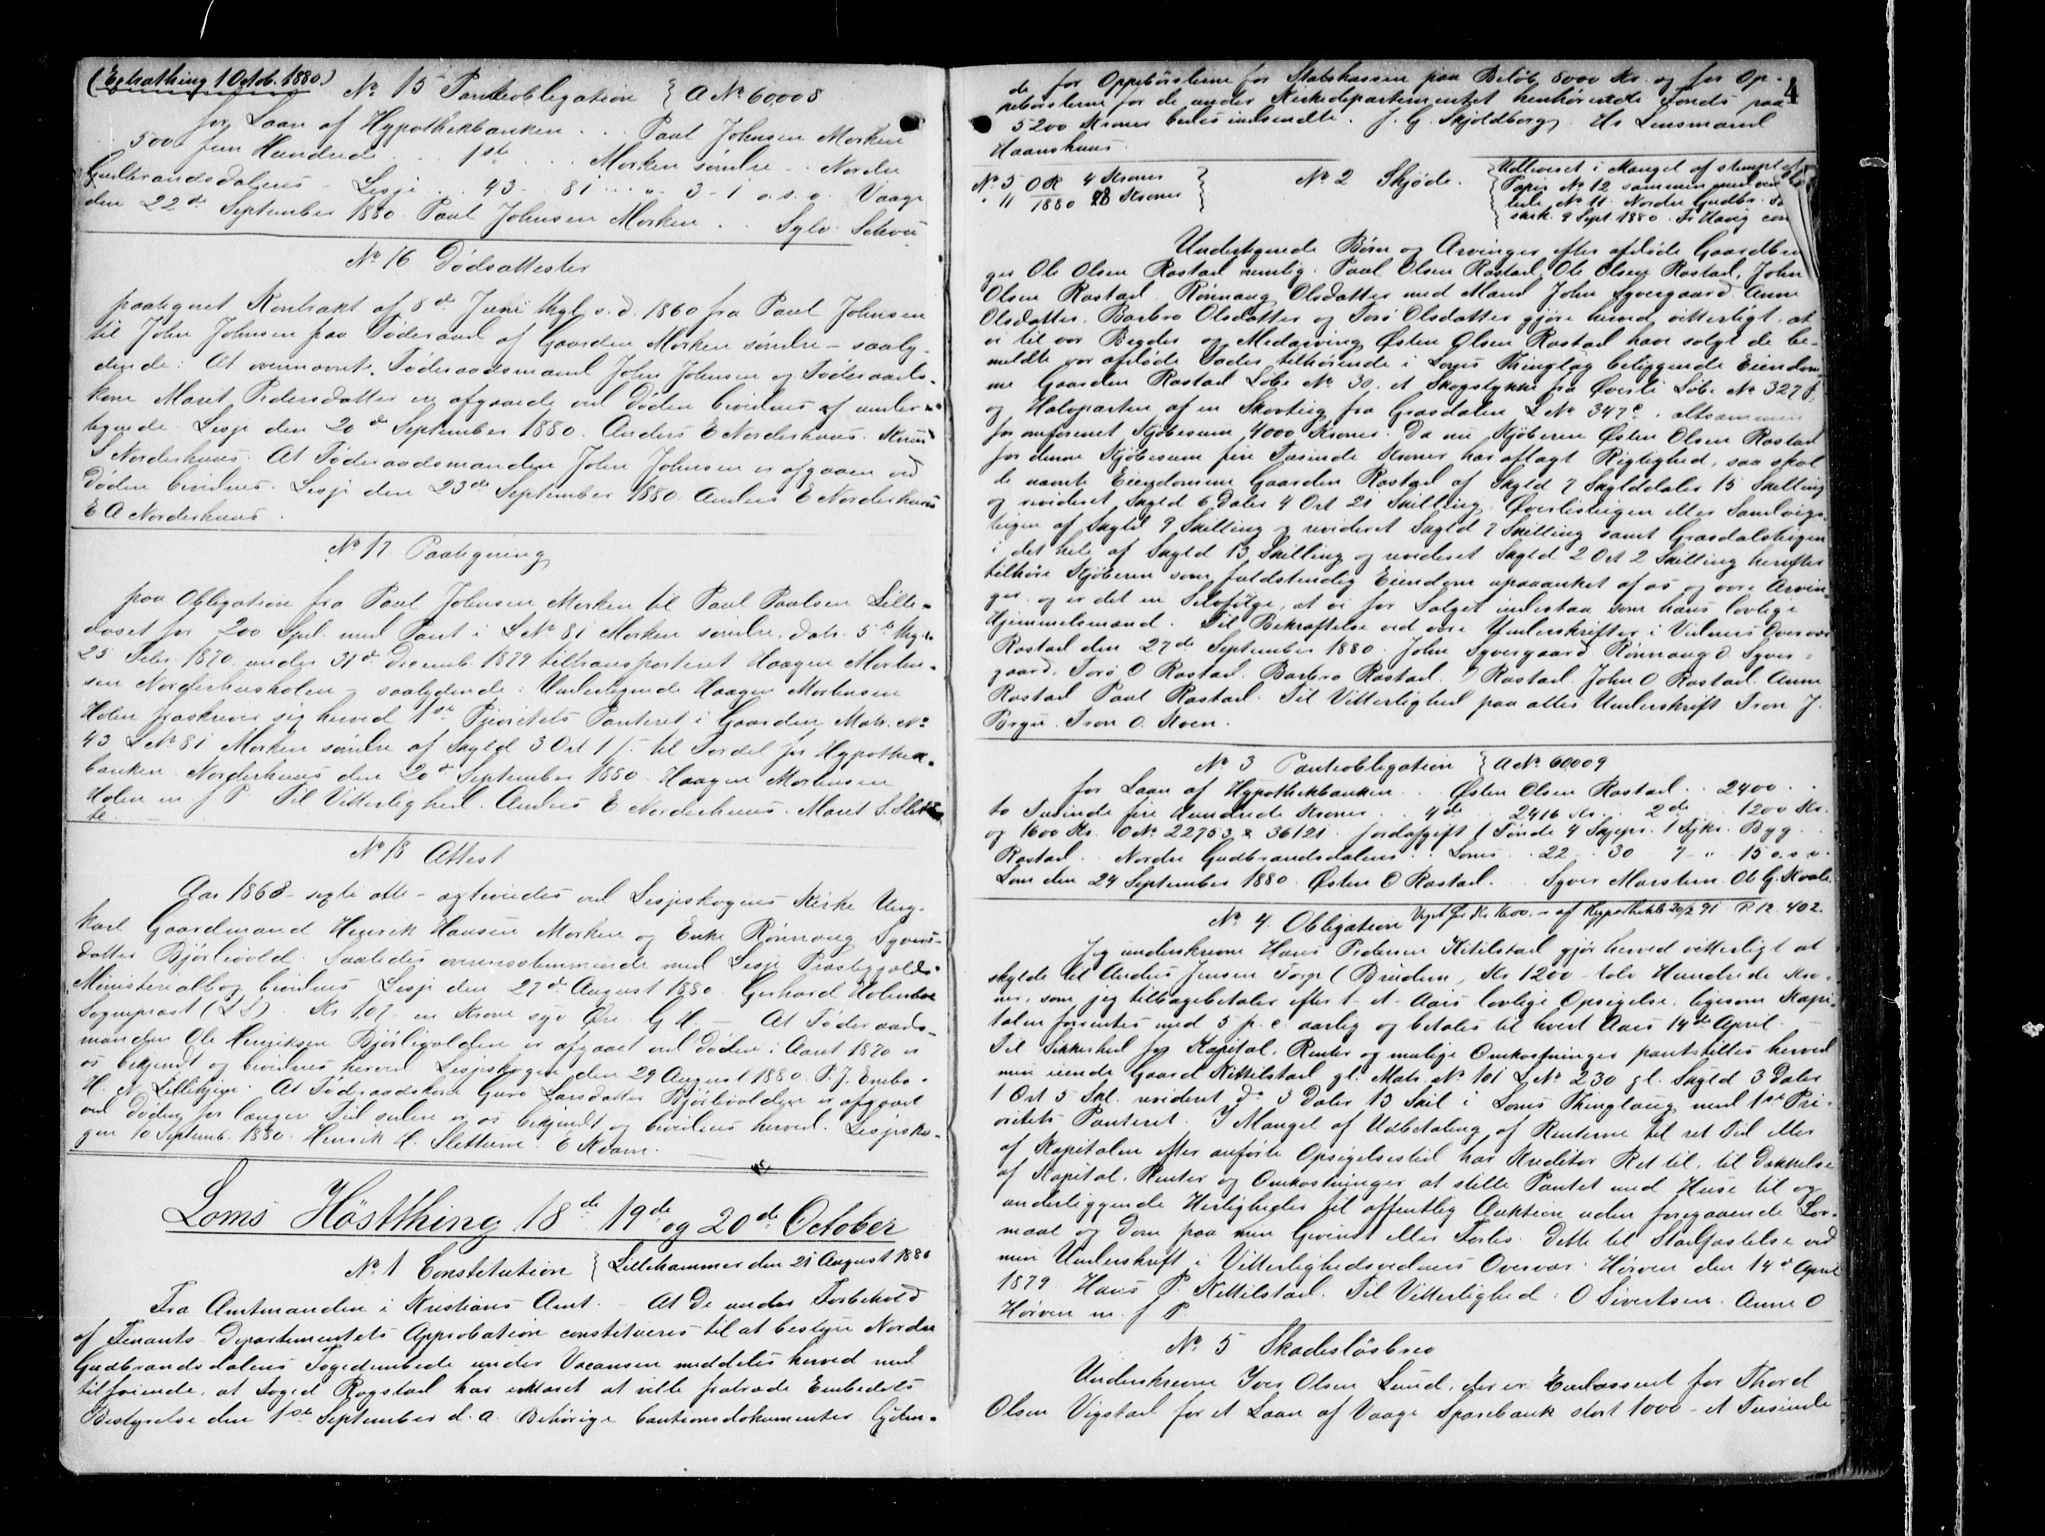 (Extrathing 1 Octob. 1880)
No 15 Panteobligation } A No 60008
for Laan af Hypothekbanken . . . Paul Johnsen Morken
500 fem Hundrede . . 1ste . . . Morken söndre . . Nordre
Gudbrandsdalens . Lesje . . 43 . 81 . . " . 3 - 1 o.s.v. Vaage
den 22de September 1880. Paul Johnsen Morken . . Sylv. Schou
No 16 Dödsattester
paategnet Kontrakt af 8de Juni thgl. s.d. 1860 fra Paul Johnsen
til John Johnsen paa Föderaad af Gaarden Morken söndre - saaly-
dende: At ovennævnte Föderaadsmand John Johnsen og Föderaads-
kone Marit Pedersdatter er afgaaede ved Döden bevidnes af under-
tegnede. Lesje den 20de September 1880. Anders E Norderhuus. Knud
S Norderhuus. At Föderaadsmanden John Johnsen er afgaaen ved
Döden bevidnes. Lesje den 23de September 1880. Anders E Norderhuus
E A Norderhuus.
No 17 Paategning
paa Obligation fra Paul Johnsen Morken til Paul Paulsen Lille-
daset for 200 Spd. med Pant i L No 81 Morken söndre, dat. 5te thgl.
25 Febr. 1870 under 31de Decemb. 1879 tiltransporteret Haagen Morten-
sen Norderhusholen - saalydende: Undertegnede Haagen Mortensen
Holen fraskriver sig herved 1ste Prioritets Panteret i Gaarden Matr. No
43 L No 81 Morken söndre af Skyld 3 Ort 1 ſ. til Fordel for Hypothek-
banken. Norderhuus den 20de September 1880. Haagen Mortensen
Holen m. f. P. Til Vitterlighed. Anders E Norderhuus. Marit S. Slet-
te
No 18 Attest
Aar 1868 - sexti otte - egteviedes ved Lesjeskogens Kirke Ung-
karl Gaardmand Henrik Hansen Morken og Enke Rönnaug Syvers-
datter Björlivold. Saaledes overensstemmende med Lesje Præstegjælds
Ministerialbog bevidnes. Lesje den 27de August 1880. Gerhard Holmboe
Sogneprest (L S). Kr 1.07 en Krone syv Öre. G H. - At Föderaads-
manden Ole Henriksen Björlivolden er afgaaet ved Döden i Aaret 1870 er
os bekjendt og bevidnes herved. Lesjeskogen den 29 August 1880. P. J. Enbo.
H. N. Lillehjen. At Föderaadskone Guro Larsdatter Björlivolden er afgaaet
ved Döden for længer Tid siden er os bekjendt og bevidnes herved. Lesjesko-
gen 10 Septemb. 1880. Henrik H. Sletteene. E Ndavne.
Loms Hösthing 18de 19de og 20de October
No 1 Constitution { Lillehammer den 21 August 1880
Fra Amtmanden i Kristians Amt. - At De under Forbehold
af Finants Departementets Approbation constitueres til at bestyre Nordre
Gudbrandsdalens Fogedembede under Vacansen meddeles herved med
tilföiende, at Foged Rogstad har erklæret at ville fratræde Embedets
Bestyrelse den 1ste September d. a. Behörige Cautionsdokumenter lyden-
4
de for Oppebörslerne for Statskassen paa Belöb 8000 Kr. og for Op-
pebörslerne for de under Kirkedepartementet henhörende Fonds paa
5200 Kroner bedes indsendte. J. G. Skjoldborg. Hr Lensmand
Haanshuus.
No 5 O R 4 Kroner
" 11 1880 28 Kroner }
No 2 Skjöde.
{ Udleveret i Mangel af stemplet
Papir No 12 sammen med
No 11. Nordre Gudbr.
skrk. 9 Sept 1880. Fr Havig con
Undertegnede Börn og Arvinger efter afdöde Gaardbru-
ger Ole Olsen Rostad nemlig: Paul Olsen Rostad, Ole Olsen Rostad, John
Olsen Rostad, Rönnaug Olsdatter med Mand John Syvergaard, Anne
Olsdatter, Barbro Olsdatter og Torö Olsdatter gjöre herved vitterligt, at
vi til vor Broder og Medarving Östen Olsen Rostad have solgt de be-
meldte vor afdöde Fader tilhörende i Loms Thinglag beliggende Eiendom-
me Gaarden Rostad Löbe No 30, et Skogstykke fra Överli Löbe No 327 f.
og Halvparten af en Skovteig fra Grasdalen L No 347 c, altsammen
for omforenet Kjöbesum 4000 Kroner. Da nu Kjöberen Östen Olsen Rostad
for denne Kjöbesum fire Tusinde Kroner har aflagt Rigtighed, saa skal
de nævnte Eiendomme Gaarden Rostad af Skyld 7 Skylddaler 15 Skilling
og revideret Skyld 6 Daler 4 Ort 21 Skilling, Överliteigen eller Sandvigs-
teigen af Skyld 9 Skilling og revideret Skyld 7 Skilling samt Grasdalsteigen
i det hele af Skyld 13 Skilling og revideret Skyld 2 Ort 2 Skilling herefter
tilhöre Kjöberen som fuldstændig Eiendom upaaanket af os og vore Arvin-
ger, og er det en Selvfölge, at vi for Salget indestaa som hans lovlige
Hjemmelsmænd. Til Bekræftelse ved vore Underskrifter i Vidners Overvær
Rostad den 27de September 1880. John Syvergaard, Rönnaug O. Syver-
gaard, Torö O Rostad. Barbro Rostad. O Rostad. John O Rostad. Anne
Rostad. Paul Rostad. Til Vitterlighed paa alles Underskrift. Tron J.
Bryn. Tron O. Moen.
No 3 Panteobligation } A No 60009
for Laan af Hypothekbanken . . Östen Olsen Rostad . . 2400 . .
to Tusinde fire Hundrede Kroner . . 4de . . 2416 Kr. . . 2de . . 1200 Kr.
og 1600 Kr. O No 22753 & 36121. Jordafgift 1 Tönde 4 Skjepr. 1 Fjkr. Byg . .
Rostad . . Nordre Gudbrandsdalens . . Loms . . 22 . 30 7 - " 15 o.s.v.
Lom den 24 September 1880. Östen O Rostad. . . Syver Marstein. Ob G. Kvale
No 4 Obligation
Jeg underskrevne Hans Pedersen Kittilstad gjör herved vitterligt at
skylde til Anders Jensen Torp (Brudem, Kr 1200 - tolv Hundrede Kro-
ner, som jeg tilbagebetaler efter 1 - et - Aars lovlige Opsigelse, ligesom Kapi-
talen forrentes med 5 p. c. aarlig og betales til hvert Aars 14de April.
Til Sikkerhed for Kapital, Renter og mulige Omkostninger pantsettes herved
min eiende Gaard Kittilstad gl. Matr. No 101 L No 230 gl. Skyld 3 Daler
1 Ort 5 Skl. revideret Do 3 Daler 13 Skil i Loms Thinglaug med 1ste Pri-
oritets Panteret. I Mangel af Udbetaling af Renterne til ret Tid eller
af Kapitalen efter anförte Opsigelsestid har Kreditor Ret til, til Dækkelse
af Kapital, Renter og Omkostninger at stille Pantet med Huse til og
underliggende Herligheder til offentlig Auktion uden foregaaende Lov-
maal og Dom paa min Gevinst eller Forlis. Dette til Stadfæstelse ved
min Underskrift i Vitterlighedsvidners Overvær. Hörven den 14de April
1879. Hans P. Kittilstad. Til Vitterlighed: O Sivertsen. Anne O
Hörven m. f. P.
No 5 Skadeslösbrev
Underskrevne Iver Olsen Lund, der er Endossent for Thord
Olsen Vigstad for et Laan af Vaage Sparebank stort 1000 - et Tusinde